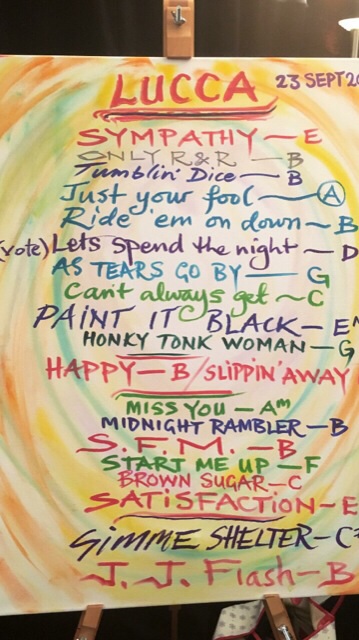 LUCCA 23 SEPT 20
SYMPATHY — E
ONLY R&R — B
Tumblin' Dice — B
Just your fool — A
Ride 'em on down — B
(vote) Lets spend the night — D
AS TEARS GO BY — G
Can't always get ~ C
PAINT IT BLACK — Em
HONKY TONK WOMAN — G
HAPPY — B / SLIPPIN' AWAY
MISS YOU — Am
MIDNIGHT RAMBLER — B
S.F.M. — B
START ME UP — F
BROWN SUGAR — C
SATISFACTION — E
GIMME SHELTER — C#
J.J. Flash — B